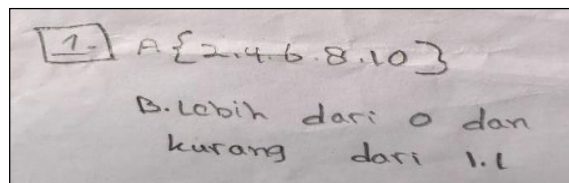 1. A {2.4.6.8.10}
B. Lebih dari 0 dan
kurang dari 1.1